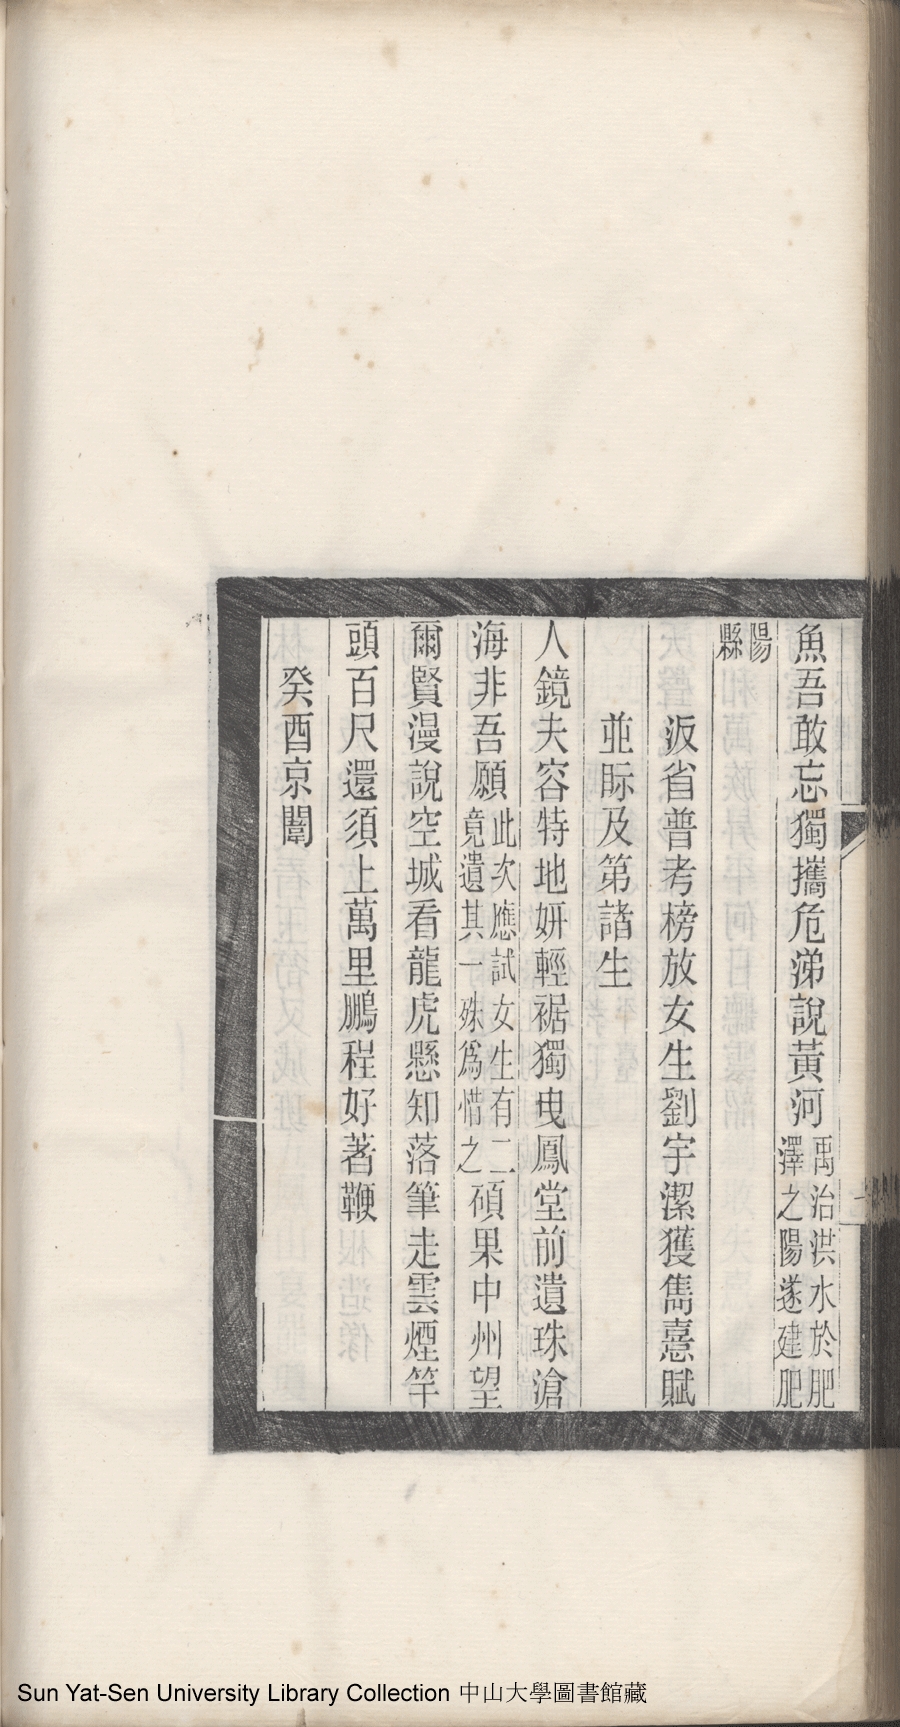 魚吾敢忘獨攜危涕說黃河禹治洪水於肥澤之陽遂建肥
陽縣
汳省普考榜放女生劉宇潔獲雋憙賦
並眎及第諸生
人鏡夫容特地妍輕裾獨曳鳳堂前遺珠滄
海非吾願此次應試女生有二竟遺其一殊爲惜之碩果中州望
爾賢漫說空城看龍虎懸知落筆走雲煙竿
頭百尺還須上萬里鵬程好著鞭
癸酉京闈
Sun Yat-Sen University Library Collection 中山大學圖書館藏